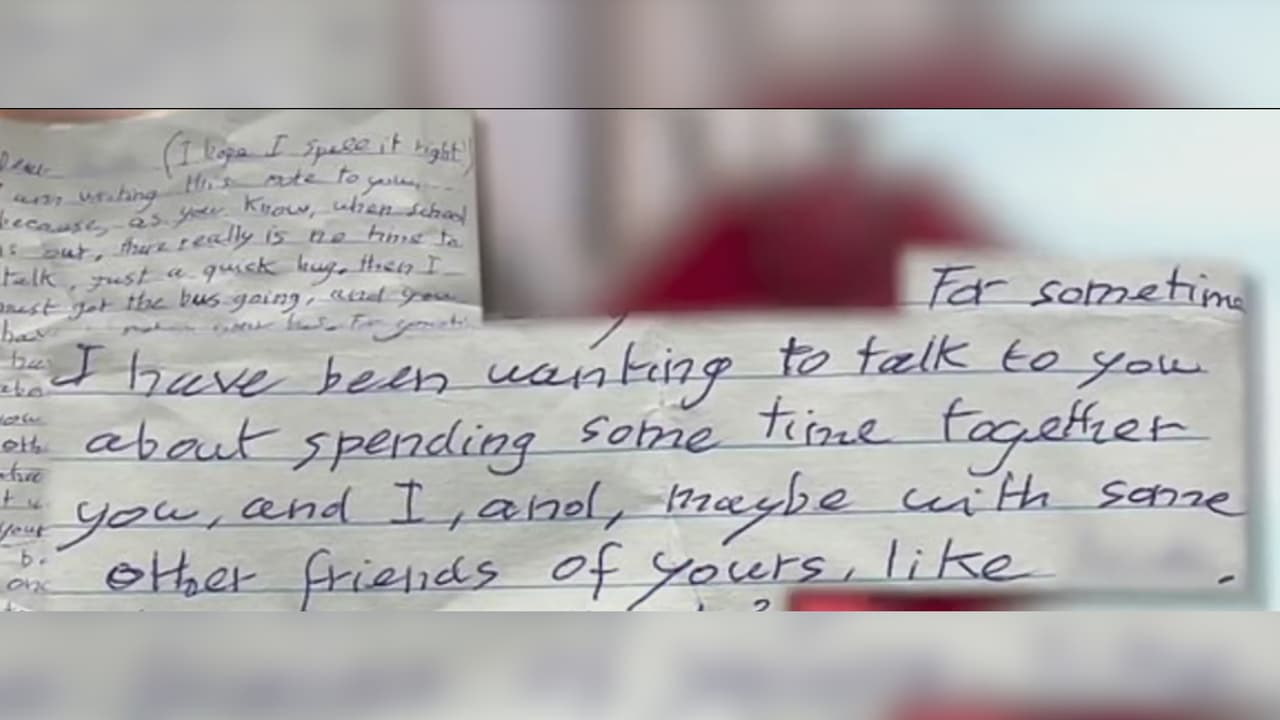 (I hope I spell it right)
am writing this note to you,
because, as you know, when school
is out, there really is no time to
talk, just a quick hug, then I
must get the bus going, and you
For sometime
I have been wanting to talk to you
about spending some time together
you, and I, and, maybe with some
other friends of yours, like .